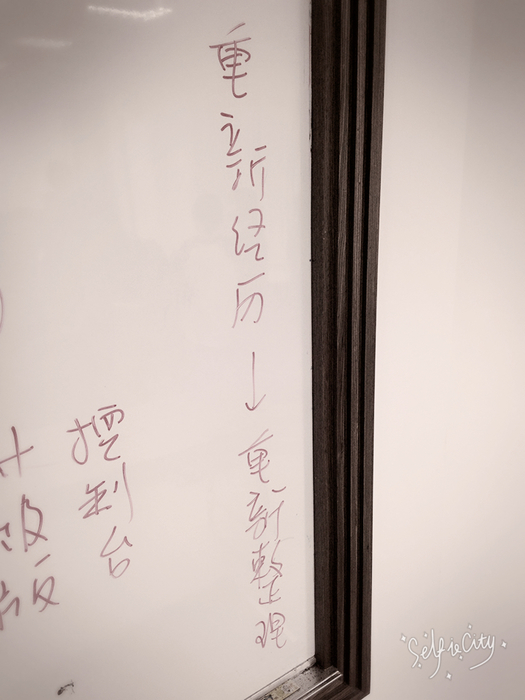 重新经历
↓
重新整理
控制台
级
板
SelfieCity